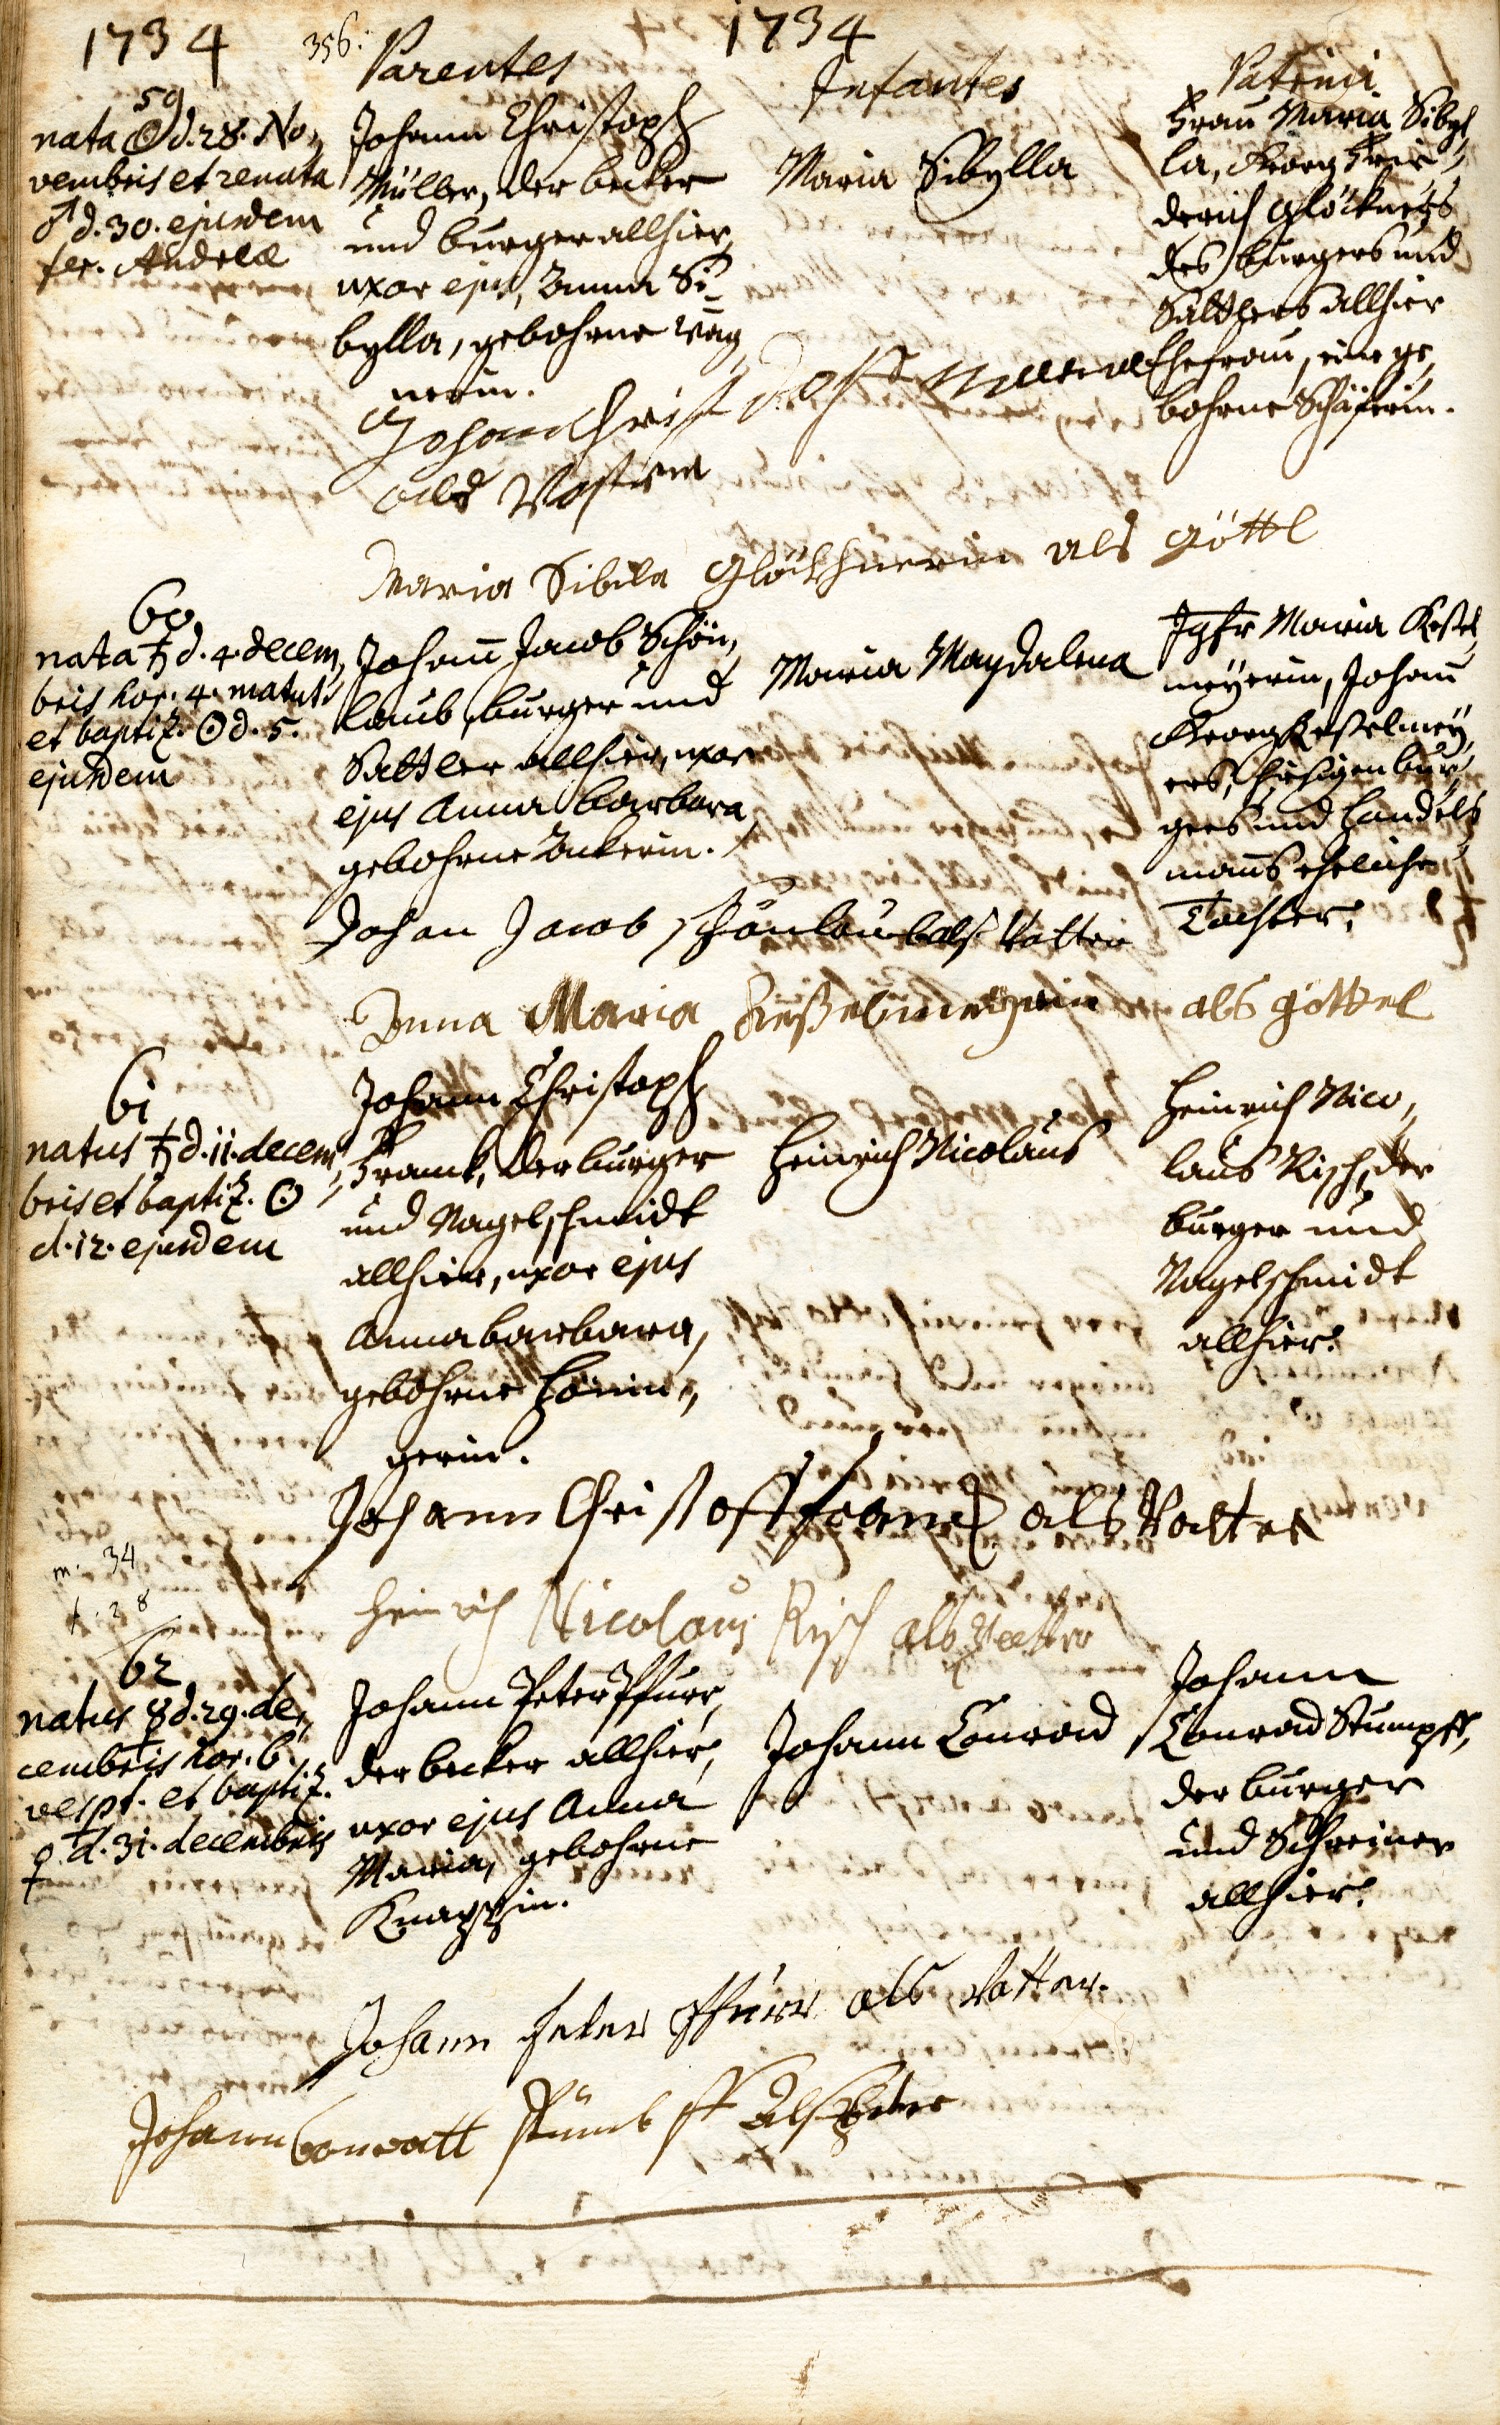 1734
356.
1734
Parentes
Infantes
Patrini
59
nata ☉ d. 28. No,
vembris et renata
♂ d. 30. ejusdem
fer. Andreæ
Johann Christoph
Müller, der becker
und burger allhier,
uxor ejus, Anna Si,
bylla, gebohrne Wag,
nerin.
Maria Sibylla
Frau Maria Sibyl,
la, Georg Frie,
derich Glöckners
des burgers und
Sattlers allhier
Ehefrau, eine ge,
bohrne Schäferin.
Johan Christoff
als
Maria Sibila Glöckhnerin als Göttl
60
nata ♄ d. 4. decem,
bris hor. 4. matut.
et baptiz. ☉ d. 5.
ejusdem
Johann Jacob Schön,
laub, burger und
Sattler allhier, uxor
ejus Anna Barbara,
gebohrne Ankerin.
Maria Magdalena
Jgfr Maria Keßel,
meyerin, Johann
Georg Keßelmey,
ers, hiesigen bur,
gers und Handels,
manns eheliche
Tochter.
Johan Jacob schönlaub als Vatter
Anna Maria Keßelmeyerin als göttel
61
natus ♄ d. 11. decem,
bris et baptiz. ☉
d. 12. ejusdem
Johann Christoph
Franck, der burger
und Nagelschmidt
allhier, uxor ejus
Anna Barbara,
gebohrne Hönin,
gerin.
Heinrich Nicolaus
Heinrich Nico,
laus Risch, der
burger und
Nagelschmidt
allhier.
Johann Christoff Franck als Vatter
m. 34
f. 28
Heinrich Nicolaus Risch als
62
natus ☿ d. 29. de,
cembris hor. 6.
vesp. et baptiz.
♀ d. 31. decembris
Johann Peter Pfurr,
der becker allhier,
uxor ejus Anna
Maria, gebohrne
Knappin.
Johann Conrad
Johann
Conrad Stumpff,
der burger
und Schreiner
allhier.
Johann Peter Pfurr als Vatter.
Johann Conratt Stumbff als